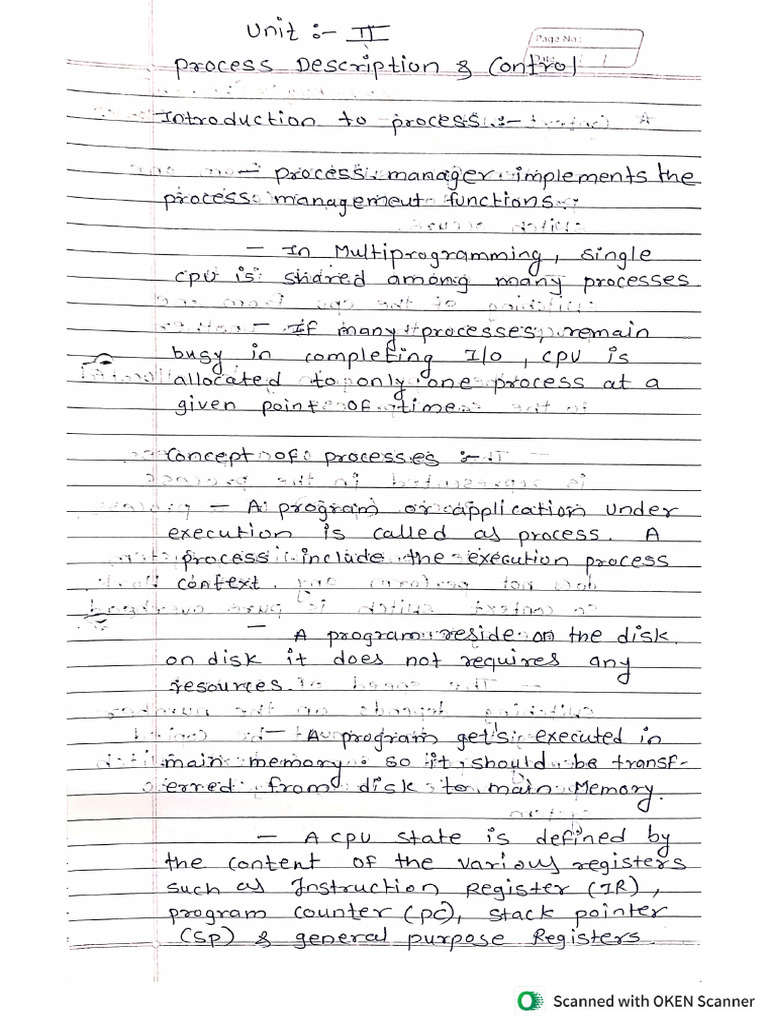 Unit :- II
Page No:
Process Description & Control
Introduction to process :-
- process manager implements the
process management functions.
- In Multiprogramming, single
cpu is shared among many processes
- If many processes remain
busy in completing I/o, cpu is
allocated to only one process at a
given point of time
Concept of processes :-
- A program or application under
execution is called as process. A
process include the execution process
context.
- A program reside on the disk.
on disk it does not requires any
resources.
- A program get's executed in
main memory so it should be transf-
erred from disk to main Memory.
- A cpu state is defined by
the content of the various registers
such as Instruction Register (IR),
program counter (pc), stack pointer
(sp) & general purpose Registers.
Scanned with OKEN Scanner